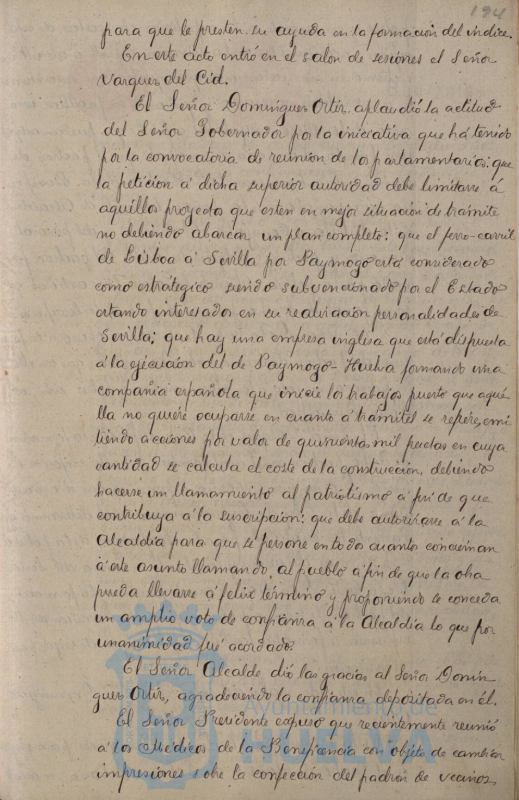 194
para que le presten su ayuda en la formacion del indice.
En este acto entró en el salon de sesiones el Señor
Vazquez del Cid.
El Señor Dominguez Ortiz aplaudió la actitud
del Señor Gobernador por la iniciativa que há tenido
por la convocatoria de reunion de los parlamentarios: que
la peticion á dicha superior autoridad debe limitarse á
aquellos proyectos que esten en mejor situacion de tramite
no debiendo abarcar un plan completo: que el ferro-carril
de Lisboa á Sevilla por Paymogo está considerado
como estratégico siendo subvencionado por el Estado
estando interesados en su realizacion personalidades de
Sevilla; que hay una empresa inglesa que está dispuesta
á la ejecucion del de Paymogo-Huelva formando una
compañia española que inicie los trabajos puesto que aque
lla no quiere ocuparse en cuanto á tramites se refiere, emi
tiendo acciones por valor de quinientas mil pesetas en cuya
cantidad se calcula el coste de la construccion, debiendo
hacerse un llamamiento al patriotismo á fin de que
contribuya á la suscripcion: que debe autorizarse á la
Alcaldia para que se persone en todo cuanto conciernan
á este asunto llamando al pueblo á fin de que la obra
pueda llevarse á feliz término y proponiendo se conceda
un amplio voto de confianza á la Alcaldia lo que por
unanimidad fué acordado.
El Señor Alcalde dió las gracias al Señor Domin
guez Ortiz, agradeciendo la confianza depositada en él.
El Señor Presidente expuso que recientemente reunió
á los Médicos de la Beneficencia con objeto de cambiar
impresiones sobre la confección del padrón de vecinos
Ayuntamiento de
HUELVA